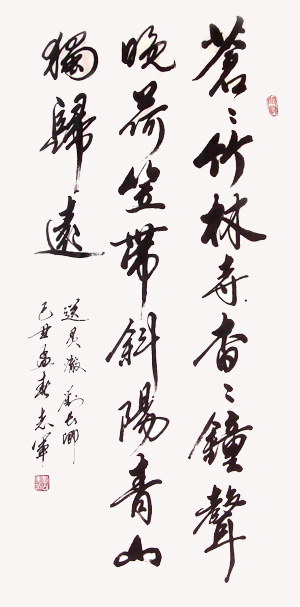 蒼〻竹林寺杳〻鐘聲
晚荷笠帶斜陽青山
獨歸遠
送灵澈劉長卿
己丑孟春志軍